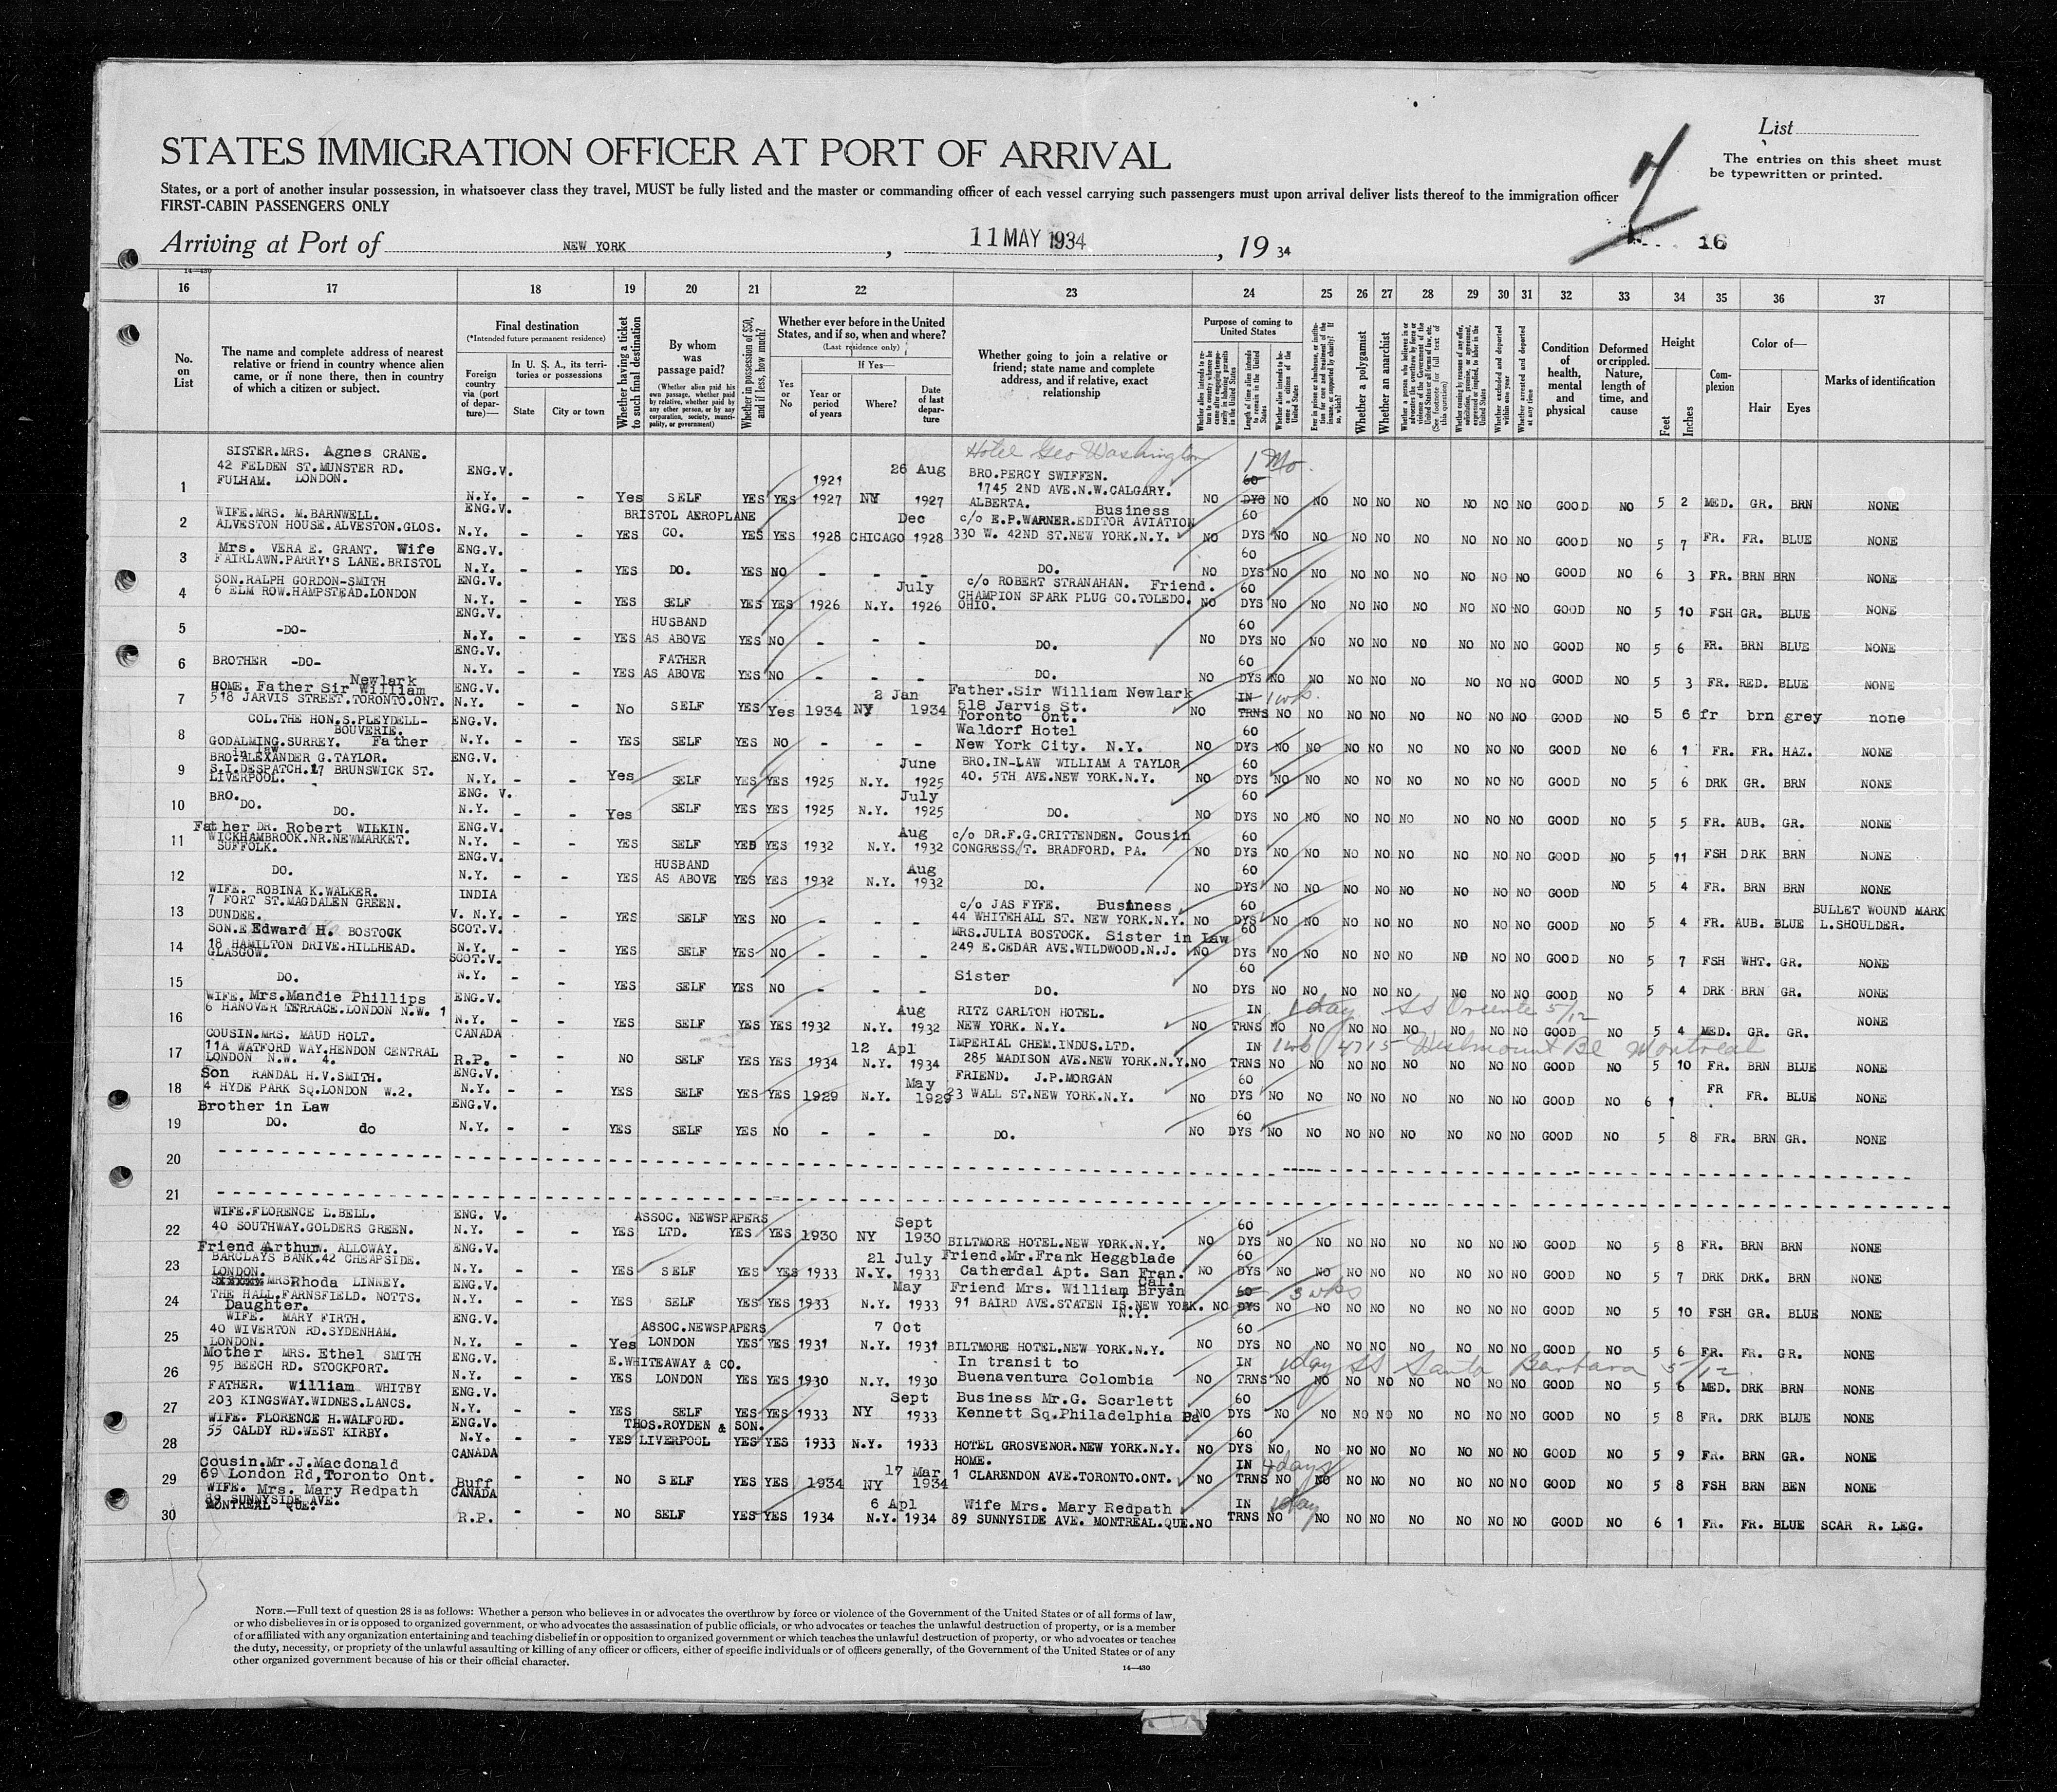 List
STATES IMMIGRATION OFFICER AT PORT OF ARRIVAL
The entries on this sheet must
be typewritten or printed.
States, or a port of another insular possession, in whatsoever class they travel, MUST be fully listed and the master or commanding officer of each vessel carrying such passengers must upon arrival deliver lists thereof to the immigration officer
FIRST-CABIN PASSENGERS ONLY
Arriving at Port of NEW YORK, 11 MAY 1934, 19 34
16
14—430
16 17 18 19 20 21 22 23 24 25 26 27 28 29 30 31 32 33 34 35 36 37
No. on List
The name and complete address of nearest relative or friend in country whence alien came, or if none there, then in country of which a citizen or subject.
Final destination
(*Intended future permanent residence)
Foreign country via (port of departure)—
In U. S. A., its territories or possessions
State City or town
Whether having a ticket to such final destination
By whom was passage paid?
(Whether alien paid his own passage, whether paid by relative, whether paid by any other person, or by any corporation, society, municipality, or government)
Whether in possession of $50, and if less, how much?
Whether ever before in the United States, and if so, when and where?
(Last residence only)
If Yes—
Yes or No
Year or period of years
Where?
Date of last departure
Whether going to join a relative or friend; state name and complete address, and if relative, exact relationship
Purpose of coming to United States
Length of time alien intends to remain in the United States
Whether alien intends to become a citizen of the United States
Whether a polygamist
Whether an anarchist
Whether excluded and deported within one year
Whether arrested and deported at any time
Condition of health, mental and physical
Deformed or crippled. Nature, length of time, and cause
Height
Feet Inches
Complexion
Color of—
Hair Eyes
Marks of identification
1 SISTER.MRS. Agnes CRANE. 42 FELDEN ST.MUNSTER RD. FULHAM. LONDON. ENG.V. N.Y. - - Yes SELF YES YES 1921 1927 NY 26 Aug 1927 Hotel Geo Washington BRO.PERCY SWIFFEN. 1745 2ND AVE.N.W.CALGARY. ALBERTA. NO 60 DYS 1 Mo. NO NO NO NO NO NO NO NO GOOD NO 5 2 MED. GR. BRN NONE
2 WIFE.MRS. M.BARNWELL. ALVESTON HOUSE.ALVESTON.GLOS. ENG.V. N.Y. - - YES BRISTOL AEROPLANE CO. YES YES 1928 CHICAGO Dec 1928 Business c/o E.P.WARNER.EDITOR AVIATION 330 W. 42ND ST.NEW YORK.N.Y. NO 60 DYS NO NO NO NO NO NO NO NO GOOD NO 5 7 FR. FR. BLUE NONE
3 Mrs. VERA E. GRANT. Wife FAIRLAWN.PARRY'S LANE.BRISTOL ENG.V. N.Y. - - YES DO. YES NO - - - DO. NO 60 DYS NO NO NO NO NO NO NO NO GOOD NO 6 3 FR. BRN BRN NONE
4 SON.RALPH GORDON-SMITH 6 ELM ROW.HAMPSTEAD.LONDON ENG.V. N.Y. - - YES SELF YES YES 1926 N.Y. July 1926 c/o ROBERT STRANAHAN. Friend. CHAMPION SPARK PLUG CO.TOLEDO. OHIO. NO 60 DYS NO NO NO NO NO NO NO NO GOOD NO 5 10 FSH GR. BLUE NONE
5 -DO- ENG.V. N.Y. - - YES HUSBAND AS ABOVE YES NO - - - DO. NO 60 DYS NO NO NO NO NO NO NO NO GOOD NO 5 6 FR. BRN BLUE NONE
6 BROTHER -DO- ENG.V. N.Y. - - YES FATHER AS ABOVE YES NO - - - DO. NO 60 DYS NO NO NO NO NO NO NO NO GOOD NO 5 3 FR. RED. BLUE NONE
7 HOME. Father Sir William Newlark 518 JARVIS STREET.TORONTO.ONT. ENG.V. N.Y. - - No SELF YES Yes 1934 NY 2 Jan 1934 Father.Sir William Newlark 518 Jarvis St. Toronto Ont. NO IN TRNS 1 wk. NO NO NO NO NO NO NO NO GOOD NO 5 6 fr brn grey none
8 COL.THE HON.S.PLEYDELL-BOUVERIE. GODALMING.SURREY. Father in law ENG.V. N.Y. - - YES SELF YES NO - - - Waldorf Hotel New York City. N.Y. NO 60 DYS NO NO NO NO NO NO NO NO GOOD NO 6 1 FR. FR. HAZ. NONE
9 BRO:ALEXANDER G.TAYLOR. S.I.DESPATCH.17 BRUNSWICK ST. LIVERPOOL. ENG.V. N.Y. - - Yes SELF YES YES 1925 N.Y. June 1925 BRO.IN-LAW WILLIAM A TAYLOR 40. 5TH AVE.NEW YORK.N.Y. NO 60 DYS NO NO NO NO NO NO NO NO GOOD NO 5 6 DRK GR. BRN NONE
10 BRO. DO. DO. ENG. V. N.Y. - - Yes SELF YES YES 1925 N.Y. July 1925 DO. NO 60 DYS NO NO NO NO NO NO NO NO GOOD NO 5 5 FR. AUB. GR. NONE
11 Father DR. Robert WILKIN. WICKHAMBROOK.NR.NEWMARKET. SUFFOLK. ENG.V. N.Y. - - YES SELF YES YES 1932 N.Y. Aug 1932 c/o DR.F.G.CRITTENDEN. Cousin CONGRESS/T. BRADFORD. PA. NO 60 DYS NO NO NO NO NO NO NO NO GOOD NO 5 11 FSH DRK BRN NONE
12 DO. ENG.V. N.Y. - - YES HUSBAND AS ABOVE YES YES 1932 N.Y. Aug 1932 DO. NO 60 DYS NO NO NO NO NO NO NO NO GOOD NO 5 4 FR. BRN BRN NONE
13 WIFE. ROBINA K.WALKER. 7 FORT ST.MAGDALEN GREEN. DUNDEE. INDIA V. N.Y. - - YES SELF YES NO - - - c/o JAS FYFE. Business 44 WHITEHALL ST. NEW YORK.N.Y. NO 60 DYS NO NO NO NO NO NO NO NO GOOD NO 5 4 FR. AUB. BLUE BULLET WOUND MARK L.SHOULDER.
14 SON.E Edward H. BOSTOCK 18 HAMILTON DRIVE.HILLHEAD. GLASGOW. SCOT.V. N.Y. - - YES SELF YES NO - - - MRS.JULIA BOSTOCK. Sister in Law 249 E.CEDAR AVE.WILDWOOD.N.J. NO 60 DYS NO NO NO NO NO NO NO NO GOOD NO 5 7 FSH WHT. GR. NONE
15 DO. SCOT.V. N.Y. - - YES SELF YES NO - - - Sister DO. NO 60 DYS NO NO NO NO NO NO NO NO GOOD NO 5 4 DRK BRN GR. NONE
16 WIFE. Mrs.Mandie Phillips 6 HANOVER TERRACE.LONDON N.W. 1 ENG.V. N.Y. - - YES SELF YES YES 1932 N.Y. Aug 1932 RITZ CARLTON HOTEL. NEW YORK. N.Y. NO IN TRNS 1 day SS Oriente 5/12 NO NO NO NO NO NO NO NO GOOD NO 5 4 MED. GR. GR. NONE
17 COUSIN.MRS. MAUD HOLT. 11A WATFORD WAY.HENDON CENTRAL LONDON N.W. 4. CANADA R.P. - - NO SELF YES YES 1934 N.Y. 12 Apl 1934 IMPERIAL CHEM.INDUS.LTD. 285 MADISON AVE.NEW YORK.N.Y. NO IN TRNS 1 wk 4715 Westmount Montreal NO NO NO NO NO NO NO NO GOOD NO 5 10 FR. BRN BLUE NONE
18 Son RANDAL H.V.SMITH. 4 HYDE PARK SQ.LONDON W.2. ENG.V. N.Y. - - YES SELF YES YES 1929 N.Y. May 1929 FRIEND. J.P.MORGAN 23 WALL ST.NEW YORK.N.Y. NO 60 DYS NO NO NO NO NO NO NO NO GOOD NO 6 1 FR. FR. BLUE NONE
19 Brother in Law DO. do ENG.V. N.Y. - - YES SELF YES NO - - - DO. NO 60 DYS NO NO NO NO NO NO NO NO GOOD NO 5 8 FR. BRN GR. NONE
20
21
22 WIFE.FLORENCE L.BELL. 40 SOUTHWAY.GOLDERS GREEN. ENG. V. N.Y. - - YES ASSOC. NEWSPAPERS LTD. YES YES 1930 NY Sept 1930 BILTMORE HOTEL.NEW YORK.N.Y. NO 60 DYS NO NO NO NO NO NO NO NO GOOD NO 5 8 FR. BRN BRN NONE
23 Friend Arthur. ALLOWAY. BARCLAYS BANK.42 CHEAPSIDE. LONDON. ENG.V. N.Y. - - YES SELF YES YES 1933 N.Y. 21 July 1933 Friend.Mr.Frank Heggblade Catherdal Apt. San Fran. Cal. NO 60 DYS NO NO NO NO NO NO NO NO GOOD NO 5 7 DRK DRK. BRN NONE
24 MRS Rhoda LINNEY. THE HALL.FARNSFIELD. NOTTS. Daughter. ENG.V. N.Y. - - YES SELF YES YES 1933 N.Y. May 1933 Friend Mrs. William Bryan 91 BAIRD AVE.STATEN IS.NEW YORK. N.Y. NO 60 DYS 3 wks NO NO NO NO NO NO NO NO GOOD NO 5 10 FSH GR. BLUE NONE
25 WIFE. MARY FIRTH. 40 WIVERTON RD.SYDENHAM. LONDON. ENG.V. N.Y. - - Yes ASSOC.NEWSPAPERS LONDON YES YES 1931 N.Y. 7 Oct 1931 BILTMORE HOTEL.NEW YORK.N.Y. NO 60 DYS NO NO NO NO NO NO NO NO GOOD NO 5 6 FR. FR. GR. NONE
26 Mother MRS. Ethel SMITH 95 BEECH RD. STOCKPORT. ENG.V. N.Y. - - YES E.WHITEAWAY & CO. LONDON YES YES 1930 N.Y. 1930 In transit to Buenaventura Colombia NO IN TRNS 1 day SS Santa Barbara 5/12. NO NO NO NO NO NO NO NO GOOD NO 5 6 MED. DRK BRN NONE
27 FATHER. William WHITBY 203 KINGSWAY.WIDNES.LANCS. ENG.V. N.Y. - - YES SELF YES YES 1933 NY Sept 1933 Business Mr.G. Scarlett Kennett Sq.Philadelphia Pa NO 60 DYS NO NO NO NO NO NO NO NO GOOD NO 5 8 FR. DRK BLUE NONE
28 WIFE. FLORENCE H.WALFORD. 55 CALDY RD.WEST KIRBY. ENG.V. N.Y. - - YES THOS.ROYDEN & SON. LIVERPOOL YES YES 1933 N.Y. 1933 HOTEL GROSVENOR.NEW YORK.N.Y. NO 60 DYS NO NO NO NO NO NO NO NO GOOD NO 5 9 FR. BRN GR. NONE
29 Cousin.Mr.J.Macdonald 69 London Rd,Toronto Ont. CANADA Buff - - NO SELF YES YES 1934 NY 17 Mar 1934 HOME. 1 CLARENDON AVE.TORONTO.ONT. NO IN TRNS 4 days NO NO NO NO NO NO NO NO GOOD NO 5 8 FSH BRN BEN NONE
30 WIFE. Mrs. Mary Redpath 89 SUNNYSIDE AVE. MONTREAL QUE. CANADA R.P. - - NO SELF YES YES 1934 N.Y. 6 Apl 1934 Wife Mrs. Mary Redpath 89 SUNNYSIDE AVE. MONTREAL.QUE. NO IN TRNS 1 day NO NO NO NO NO NO NO NO GOOD NO 6 1 FR. FR. BLUE SCAR R. LEG.
NOTE.—Full text of question 28 is as follows: Whether a person who believes in or advocates the overthrow by force or violence of the Government of the United States or of all forms of law,
or who disbelieves in or is opposed to organized government, or who advocates the assassination of public officials, or who advocates or teaches the unlawful destruction of property, or is a member
of or affiliated with any organization entertaining and teaching disbelief in or opposition to organized government or which teaches the unlawful destruction of property, or who advocates or teaches
the duty, necessity, or propriety of the unlawful assaulting or killing of any officer or officers, either of specific individuals or of officers generally, of the Government of the United States or of any
other organized government because of his or their official character.
14—430